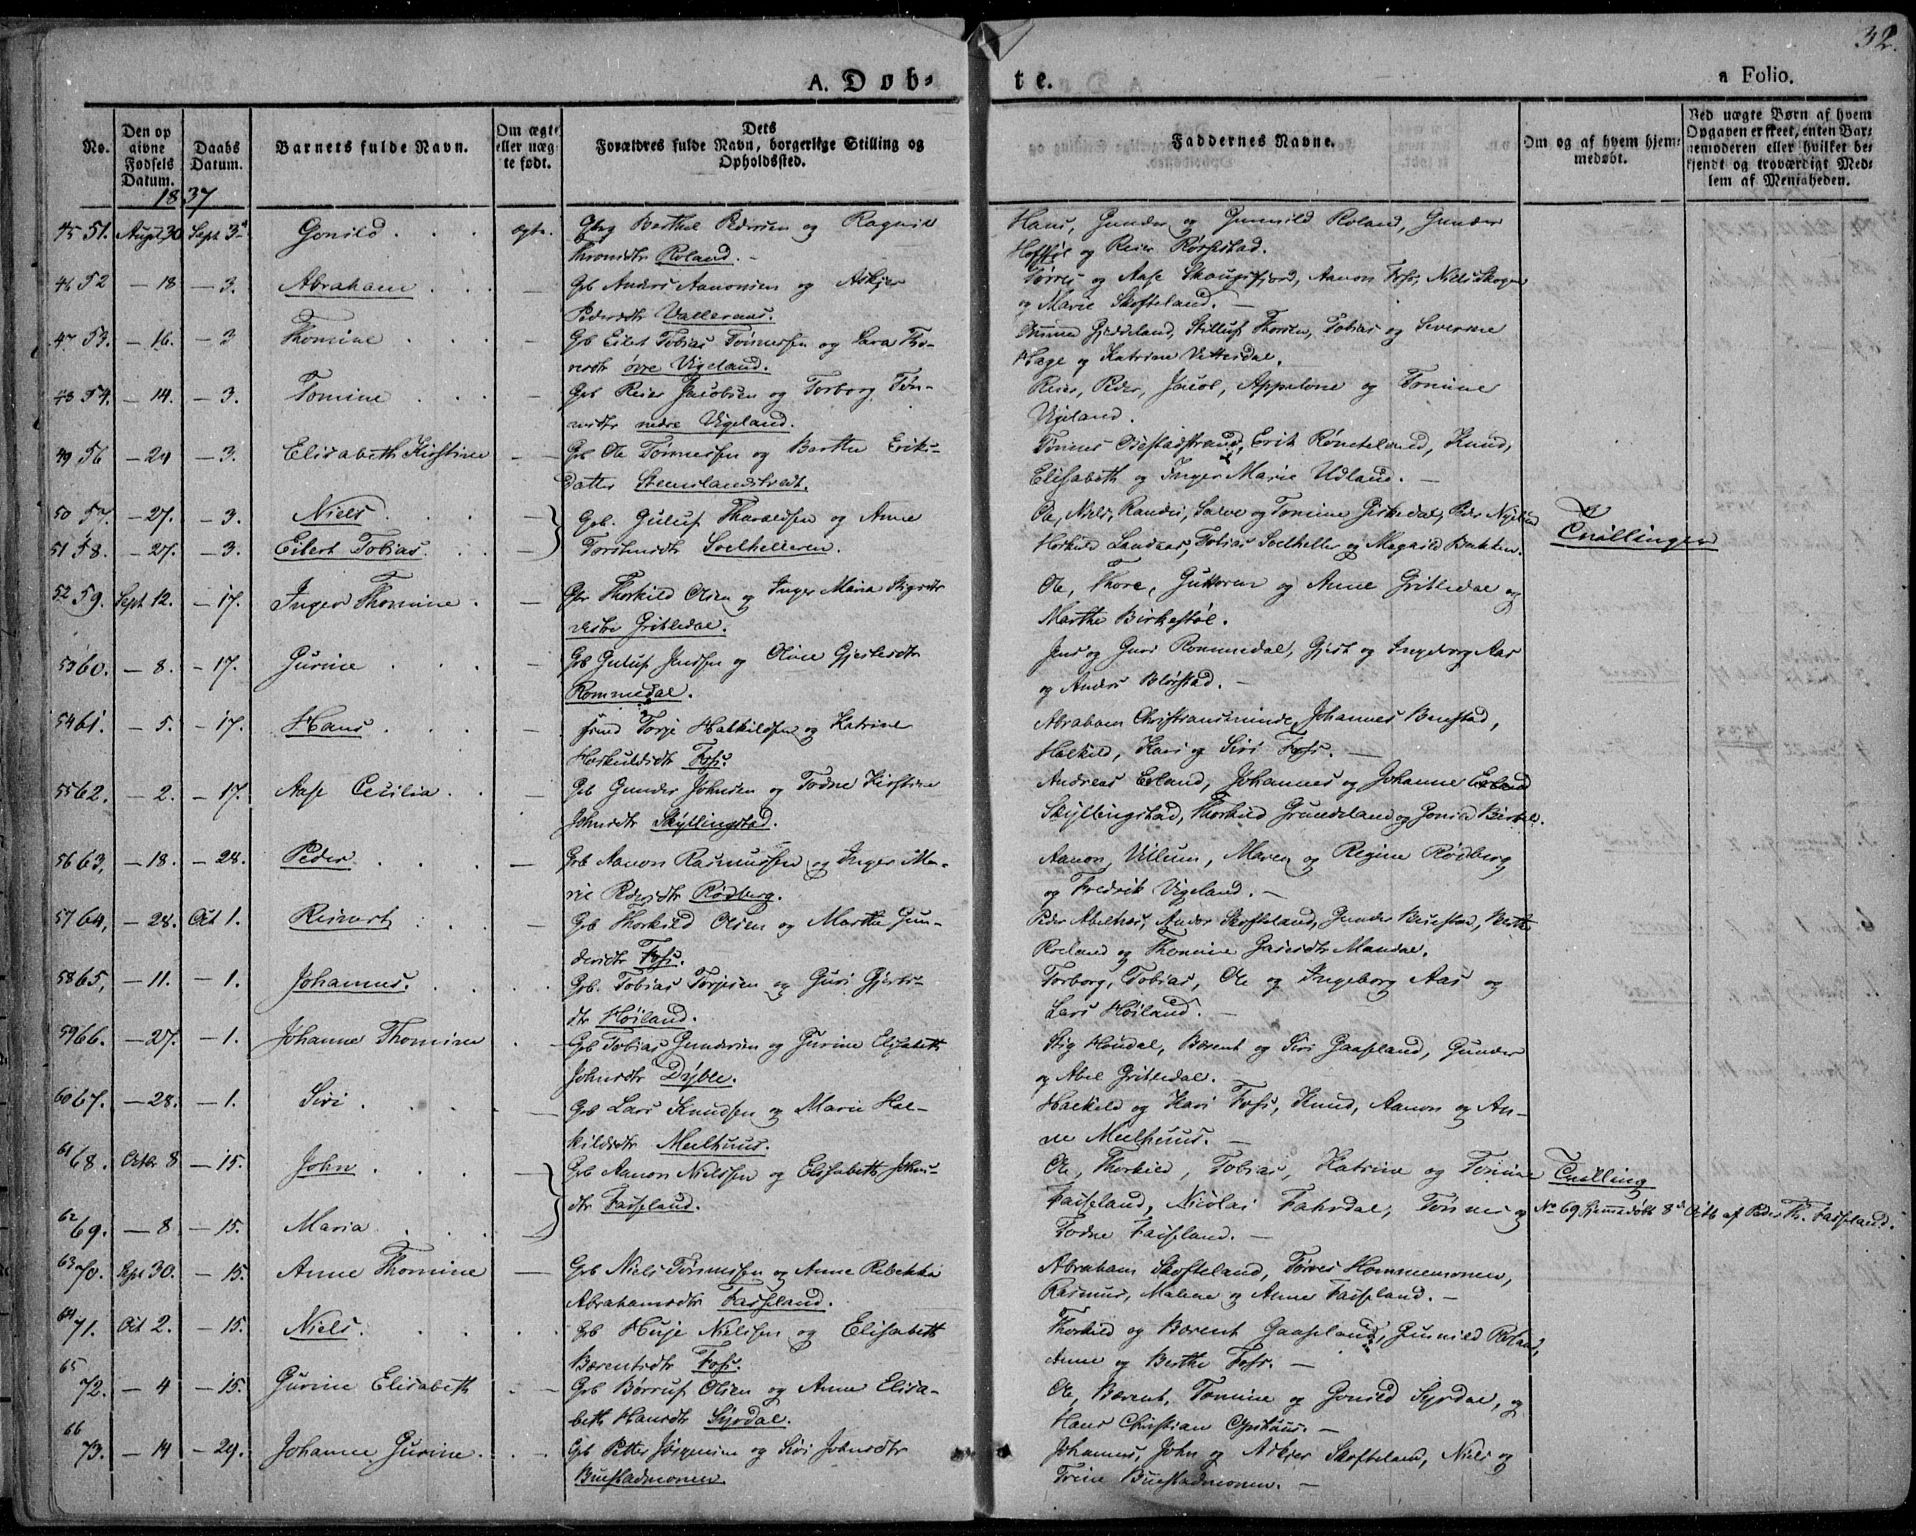 32.
A. Døb-
te.
a Folio.
No.
Den op
givne
Fødsels
Datum.
Daabs
Datum.
Barnets fulde Navn.
Om ægte
eller uæg
te født.
Dets
Forældres fulde Navn, borgerlige Stilling og
Opholdssted.
Faddernes Navne.
Om og af hvem hjem-
medøbt.
Ved uægte Børn af hvem
Opgaven er skeet, enten Bar-
nemoderen eller hvilket be-
kjendt og troværdigt Med-
lem af Menigheden.
1837
45 51. Augt 30 Sept 3d Gonild . . . ægte. Berthel Pedersen og Ragnild
Roland.
Hans, Gunder og Gunvild Roland, Gunder
og Reier
46 52 — 18 — 3. Abraham . . . — Gb Anders Aanonsen og Askjer
Pedersdtr
og Aase Skougsfjord, Aanon Foss, Niels Skogen
og Marie Skofteland. —
47 53. — 16. — 3 Thomine . . . — Gb Eilert Tobias Tønnessen og Sara Tho-
øvre Vigeland.
Gjeddeland, Tobias og Severine
Hage og Katrine Vettesdal.
48 54. — 14. — 3. Tomine . . . — Gb Reier Jacobsen og Torborg Tøn-
nesdtr nedre Vigeland.
Reier, Peder, Jacob, Appelone og Tomine
Vigeland.
49 56 — 24 — 3. Elisabeth Kirstine — Gb Ole Tønnessen og Berthe Eriks-
datter
Tønnes Erik Knud,
Elisabeth og Inger Marie Udland. —
50 57. — 27. — 3. Niels . . . — Gb. Guluf Tharaldsen og Anne
Ole, Niels, Randei, Salve og Tomine
51 58. — 27. — 3. Eilert Tobias. . . — Torstensdtr Soelhelleren.
Landaas, Tobias Soelheller og Magnild Bakken.
Tvillinger
52 59. Sept 12. — 17. Inger Thomine . — Gb Thorkild Olsen og Inger Maria Stigsdtr
Gritledal.
Ole, Thore, Guttorm og Anne Gritledal og
Marthe Birkestøl.
53 60. — 8. — 17. Gurine . . . — Gb Guluf Jensen og Oline Gjertsdtr
Rommedal.
Jens og Guri Rommedal, Gjert og Ingeborg Aas
og Anders Blørstad. —
54 61. — 5. — 17. Hans . . . — Torje Halkildsen og Katrine
Foss.
Abraham Christiansminde, Johannes Buestad,
Halkild, Kari og Siri Foss. —
55 62. — 2. — 17. Aase Cecilia . . — Gb Gunder Johnsen og Todne Kirstine
Johnsdtr Skyllingstad.
Andreas Johannes og Johanne
Skyllingstad, Thorkild Grundeland og Gonild
56 63. — 18. — 28. Peder . . . — Gb Aanon Rasmussen og Inger Ma-
rie Pedersdtr Rødberg.
Aanon, Villum, Maren og Regine Rødberg
og Fredrik Vigeland. —
57 64. — 28. Oct 1. Reinert . . . Gb Thorkild Olsen og Marthe Gun-
dersdtr Foss.
Peder Abelnes, Anders Skofteland, Gunder Buestad,
Roland og Thomine Mandal.
58 65, — 11. — 1. Johannes. . . . Gb. Tobias Torjesen og Guri Gjerts-
dtr Høiland.
Torborg, Tobias, Ole og Ingeborg Aas og
Lars Høiland. —
59 66. — 27. — 1. Johanne Thomine . — Gb Tobias Gundersen og Gurine Elisabeth
Johnsdtr Dyble.
Stig Houdal, Børent og Siri Gaaseland, Gunder
og Abel Gritledal. —
60 67. — 28. — 1. Siri . . . — Gb Lars Knudsen og Marie Hal-
kildsdtr Meelhuus.
Halkild og Kari Foss, Knud, Aanon og An-
ne Meelhuus. —
61 68. Octbr 8 — 15. John . . . — Gb Aanon Nielssen og Elisabeth Johns-
dtr Faiseland.
Ole, Thorkild, Tobias, Katrine og Tomine
Tvilling
62 69. — 8 — 15. Maria . . . —
Faiseland, Nicolai Fahrdal, Tønnes og
Todne Faiseland. —
No 69 Hjemmedøbt 8d Octb af Peder Th. Faiseland.
63 70. Sept 30. — 15. Anne Thomine — Gb Niels Tønnessen og Anne Rebekka
Abrahamsdtr Faiseland.
Abraham Skofteland, Tørres Hommemonen,
Rasmus, Malene og Anne Faiseland. —
64 71. Oct 2. — 15. Niels. . . . Gb Huje Nielssen og Elisabeth
Børentsdtr Foss.
Thorkild og Børent Gaaseland, Gunvild Roland,
Anne og Berthe Foss. —
65 72. — 4 — 15. Gurine Elisabeth . — Gb Børruf Olsen og Anne Elisa-
beth Hansdtr Syrdal.
Ole, Børent, Tomine og Gonild Syrdal, og
Hans Christian
66 73. — 14 — 29. Johanne Gurine . . . Gb Petter Jørgensen og Siri Johnsdtr
Buestadmonen.
Johannes, John og Askjer Skofteland, Niels og
Trine Buestadmonen. —